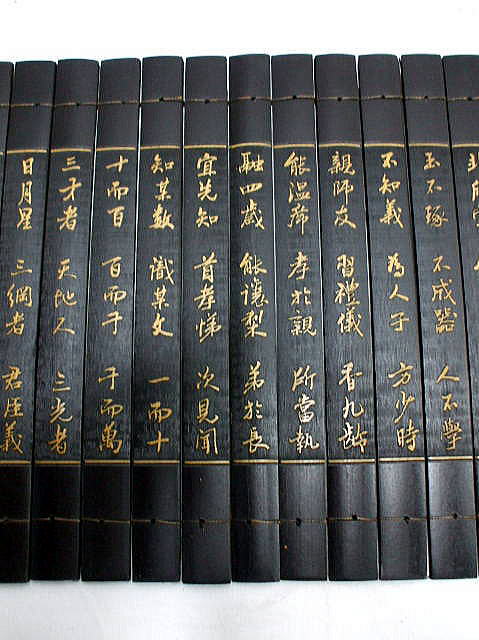 玉不琢 不成器 人不學
不知義 為人子 方少時
親師友 習禮儀 香九齡
能溫席 孝於親 所當執
融四歲 能讓梨 弟於長
宜先知 首孝悌 次見聞
知某數 識某文 一而十
十而百 百而千 千而萬
三才者 天地人 三光者
日月星 三綱者 君臣義